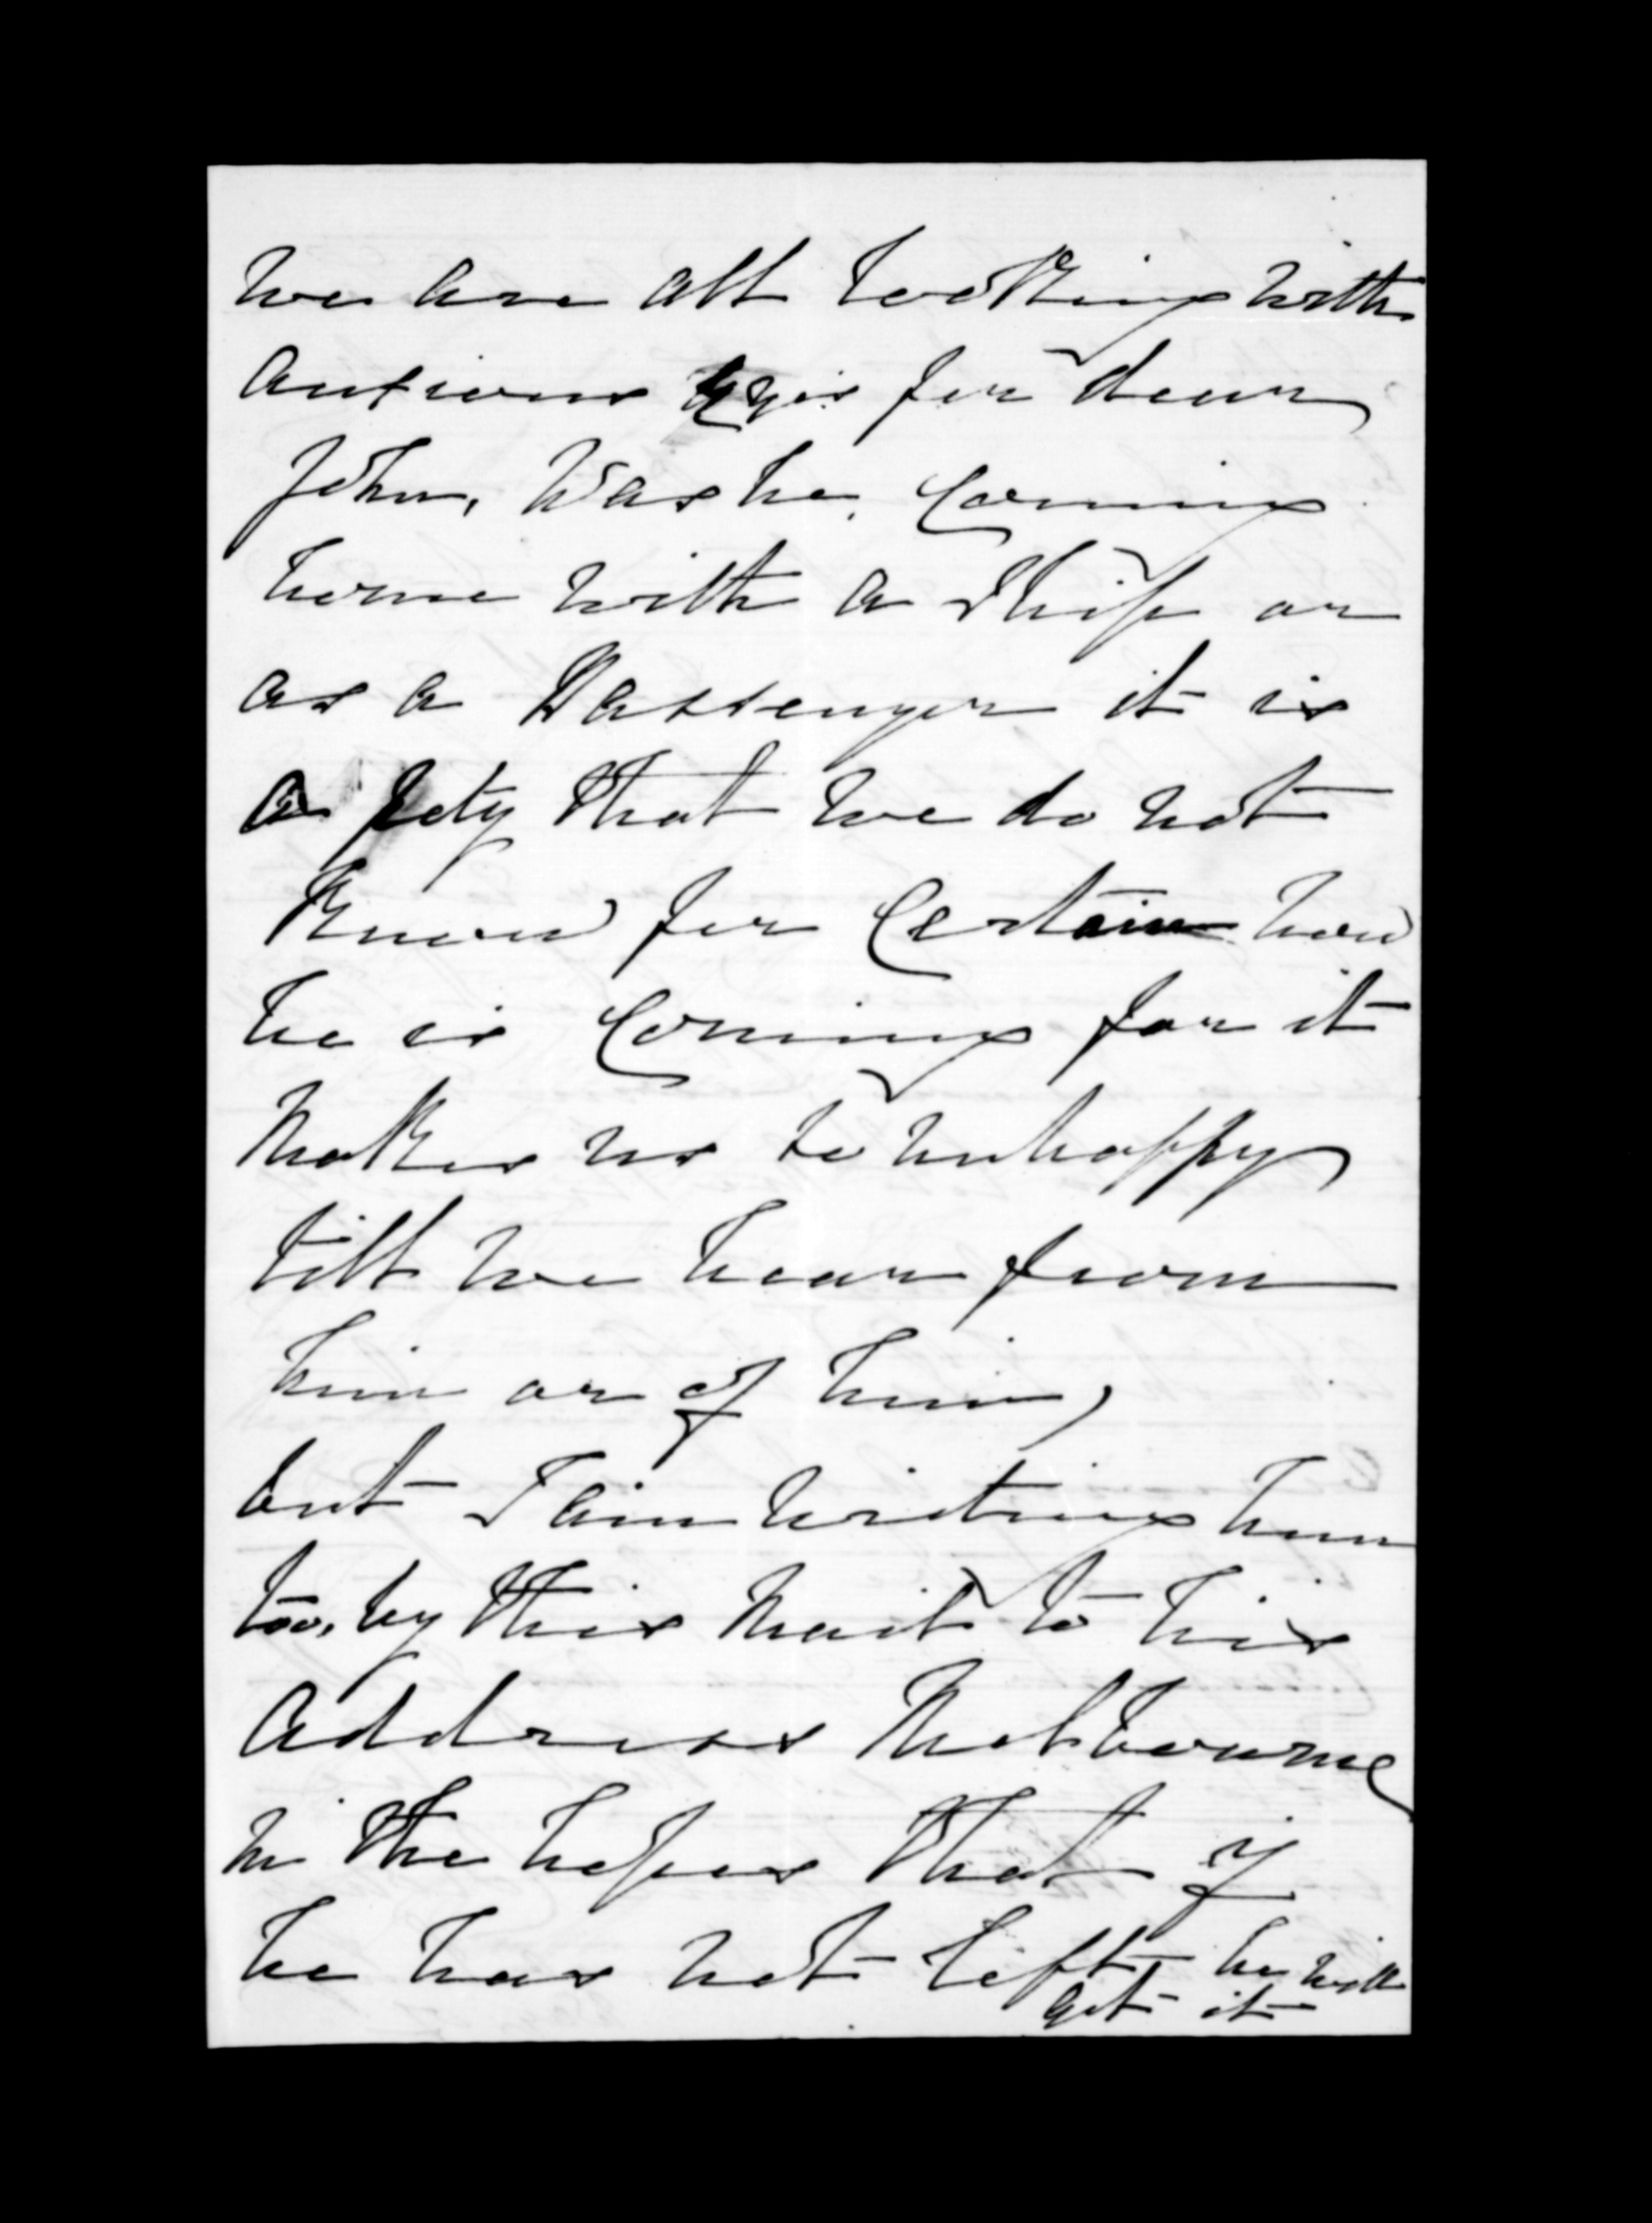 we are all looking with
anxious Eyes for dear
John, Was he. Coming
home with a Ship or
as a Passenger it is
a pety that we do not
Know for Certain how
he is Coming for it
Makes us so unhappy
till we hear from
him or of him,
but I am writing him
too, by this Mail to his
Address Melbourne
in the hopes that if
he has not left he will
get it